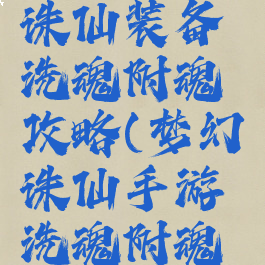 诛仙装备
洗魂附魂
攻略(梦幻
诛仙手游
洗魂附魂